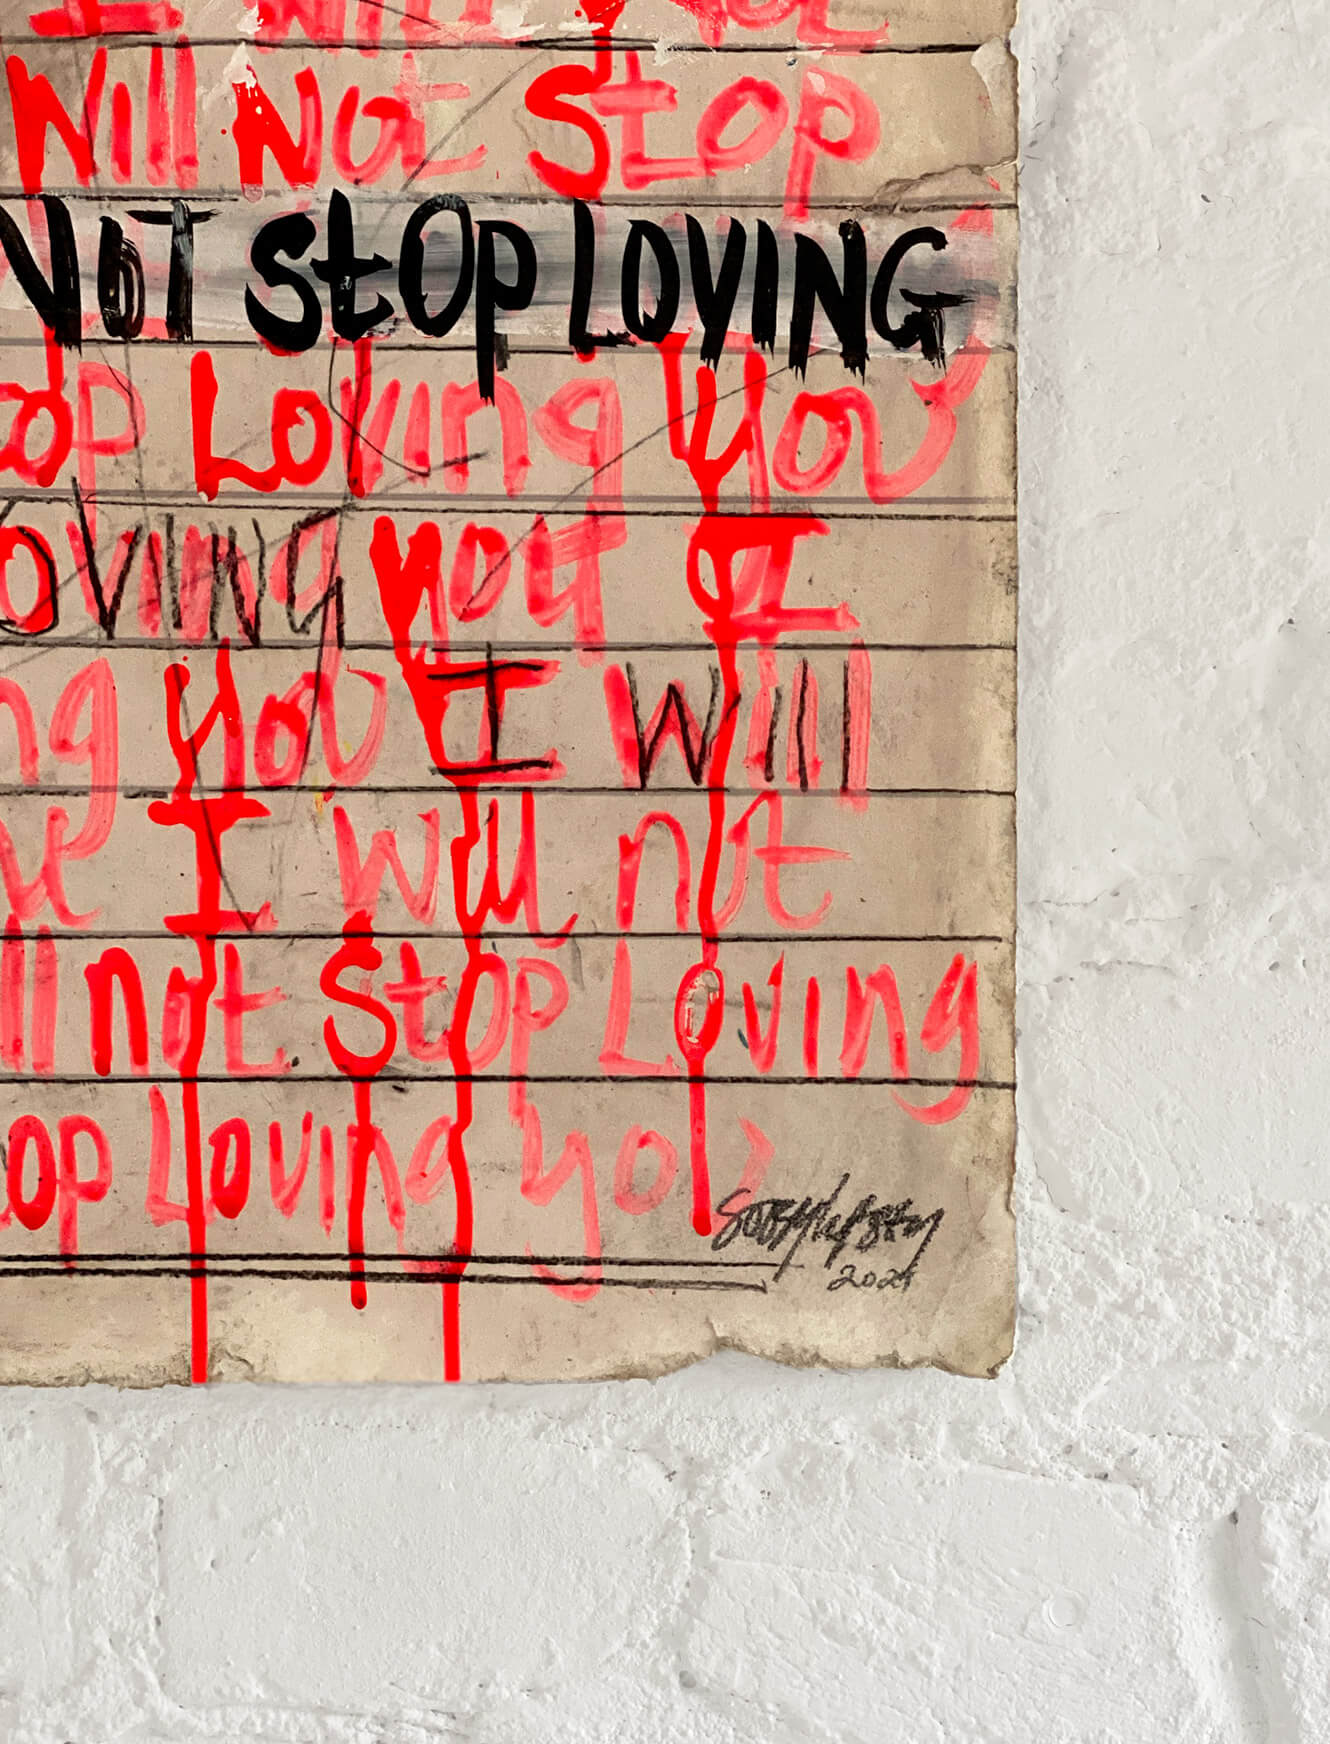 I Will Not
Will Not Stop
NOT StOp LOVING
op Loving You
oving you I
ng you I Will
I will not
ll not Stop Loving
op Loving you
2021